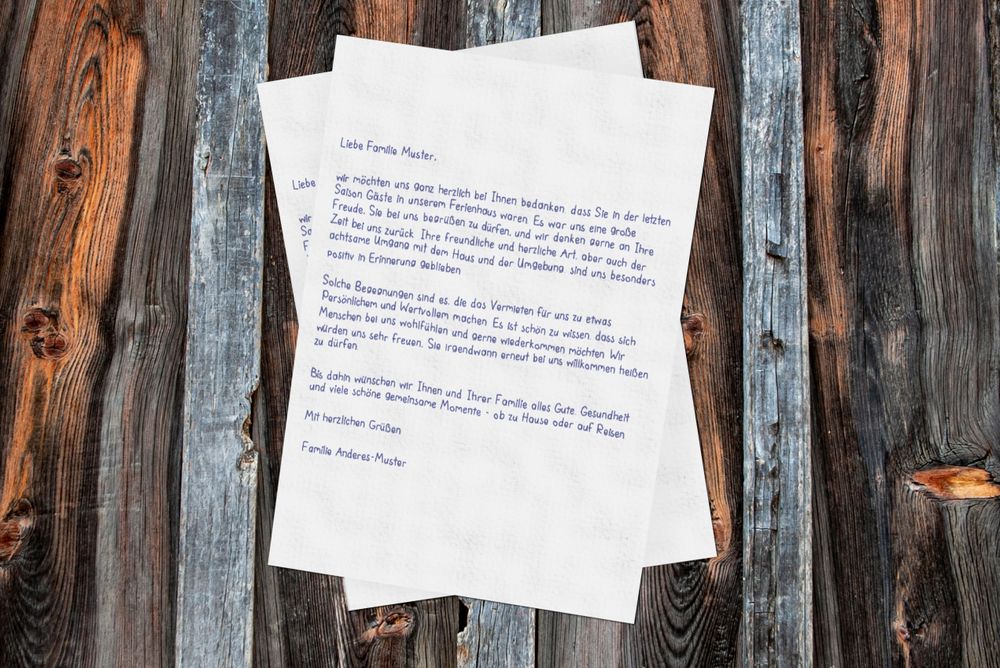 Liebe Familie Muster,
wir möchten uns ganz herzlich bei Ihnen bedanken, dass Sie in der letzten
Saison Gäste in unserem Ferienhaus waren. Es war uns eine große
Freude, Sie bei uns begrüßen zu dürfen, und wir denken gerne an Ihre
Zeit bei uns zurück. Ihre freundliche und herzliche Art, aber auch der
achtsame Umgang mit dem Haus und der Umgebung, sind uns besonders
positiv in Erinnerung geblieben
Solche Begegnungen sind es, die das Vermieten für uns zu etwas
Persönlichem und Wertvollem machen. Es ist schön zu wissen, dass sich
Menschen bei uns wohlfühlen und gerne wiederkommen möchten. Wir
würden uns sehr freuen, Sie irgendwann erneut bei uns willkommen heißen
zu dürfen.
Bis dahin wünschen wir Ihnen und Ihrer Familie alles Gute, Gesundheit
und viele schöne gemeinsame Momente - ob zu Hause oder auf Reisen
Mit herzlichen Grüßen
Familie Anderes-Muster
Liebe
wir
Sa
F